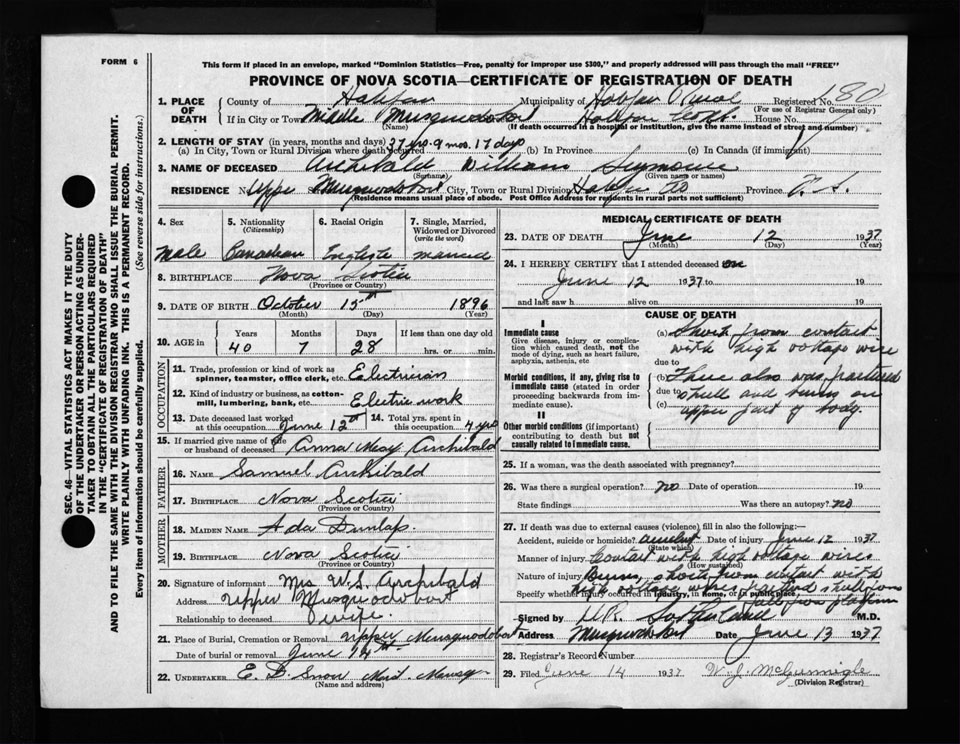 FORM 6
This form if placed in an envelope, marked "Dominion Statistics—Free, penalty for improper use $300," and properly addressed will pass through the mail "FREE"
PROVINCE OF NOVA SCOTIA—CERTIFICATE OF REGISTRATION OF DEATH
SEC. 46—VITAL STATISTICS ACT MAKES IT THE DUTY
OF THE UNDERTAKER OR PERSON ACTING AS UNDER-
TAKER TO OBTAIN ALL THE PARTICULARS REQUIRED
IN THE "CERTIFICATE OF REGISTRATION OF DEATH"
AND TO FILE THE SAME WITH THE DIVISION REGISTRAR WHO SHALL ISSUE THE BURIAL PERMIT.
WRITE PLAINLY WITH UNFADING INK. THIS IS A PERMANENT RECORD.
Every item of information should be carefully supplied. (See reverse side for instructions.)
1. PLACE OF DEATH County of Halifax Municipality of Halifax Rural Registered No. 180
(For use of Registrar General only)
If in City or Town Middle Musquodoboit Halifax House No.
(Name) (If death occurred in a hospital or institution, give the name instead of street and number)
2. LENGTH OF STAY (in years, months and days)
(a) In City, Town or Rural Division where death occurred 27 yrs. 9 mos. 17 days (b) In Province (c) In Canada (if immigrant)
3. NAME OF DECEASED Archibald William Seymour
(Surname) (Given name or names)
RESIDENCE No. Upper Musquodoboit City, Town or Rural Division Halifax Co Province N.S.
(Residence means usual place of abode. Post Office Address for residents in rural parts not sufficient)
4. Sex Male
5. Nationality (Citizenship) Canadian
6. Racial Origin English
7. Single, Married, Widowed or Divorced (write the word) married
8. BIRTHPLACE Nova Scotia
(Province or Country)
9. DATE OF BIRTH October 15th 1896
(Month) (Day) (Year)
10. AGE in Years 40 Months 7 Days 28 If less than one day old hrs. or min.
OCCUPATION
11. Trade, profession or kind of work as
spinner, teamster, office clerk, etc. Electrician
12. Kind of industry or business, as cotton-
mill, lumbering, bank, etc. Electric work
13. Date deceased last worked at this occupation June 12th
14. Total yrs. spent in this occupation 4 yrs
15. If married give name of wife
or husband of deceased Anna May Archibald
FATHER
16. NAME Samuel Archibald
17. BIRTHPLACE Nova Scotia
(Province or Country)
MOTHER
18. MAIDEN NAME Ada Dunlap
19. BIRTHPLACE Nova Scotia
(Province or Country)
20. Signature of informant Mrs W.S. Archibald
Address Upper Musquodoboit
Relationship to deceased wife
21. Place of Burial, Cremation or Removal Upper Musquodoboit
Date of burial or removal June 14th
22. UNDERTAKER E. D. Snow Mid. Musq.
(Name and address)
MEDICAL CERTIFICATE OF DEATH
23. DATE OF DEATH June 12 1937
(Month) (Day) (Year)
24. I HEREBY CERTIFY that I attended deceased on
June 12 1937 to 19
and last saw h alive on 19
CAUSE OF DEATH
I
Immediate cause
Give disease, injury or complica-
tion which caused death, not the
mode of dying, such as heart failure,
asphyxia, asthenia, etc
(a) Shock from contact
with high voltage wire
due to
Morbid conditions, if any, giving rise to
immediate cause (stated in order
proceeding backwards from im-
mediate cause).
(b) There also was fractured
due to skull and burns on
(c) upper part of body
II
Other morbid conditions (if important)
contributing to death but not
causally related to immediate cause.
25. If a woman, was the death associated with pregnancy?
26. Was there a surgical operation? no Date of operation 19
State findings Was there an autopsy? no
27. If death was due to external causes (violence) fill in also the following:—
Accident, suicide or homicide? accident Date of injury June 12 1937
(State which)
Manner of injury Contact with high voltage wires
(How sustained)
Nature of injury Burns, shock from contact with
high wires
Specify whether injury occurred in industry, in home, or in public place
fall from platform
Signed by M.D.
Address Musquodoboit Date June 13 1937
28. Registrar's Record Number
29. Filed June 14 1937 W. J. McGunnigle
(Division Registrar)